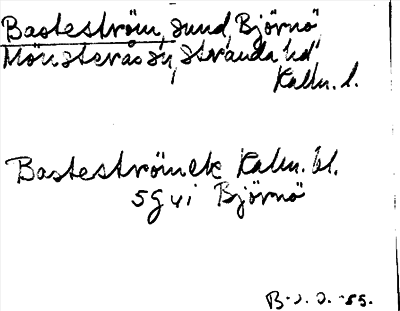 Basteström, sund, Björnö,
Mönsterås sn, Stranda hd
Kalm. l.
Basteströmek Kalm. bl.
5G vi Björnö
B. J. O. -55.